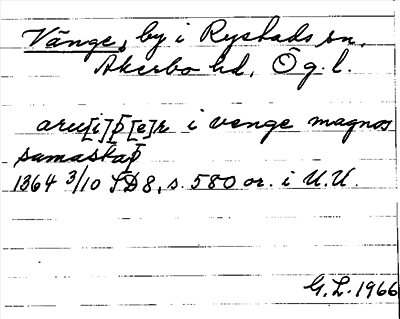 Vänge, by i Rystads sn,
Åkerbo hd, Ög. l.
aru[i]þ[e]r i venge magnos
samastaþ
1364 3/10 SD 8, s. 580 or. i U.U.
G. L. 1966